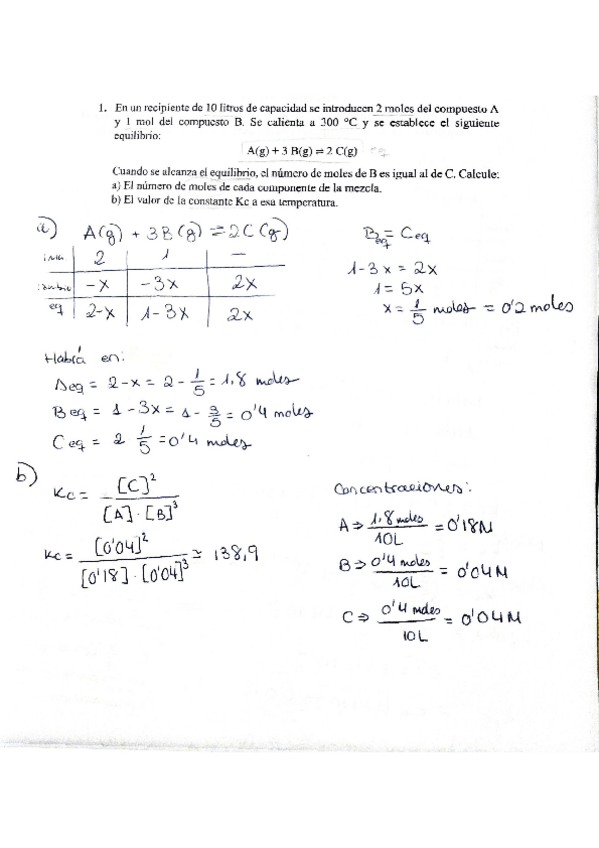 1. En un recipiente de 10 litros de capacidad se introducen 2 moles del compuesto A
y 1 mol del compuesto B. Se calienta a 300 °C y se establece el siguiente
equilibrio:
A(g) + 3 B(g) ⇌ 2 C(g)
Cuando se alcanza el equilibrio, el número de moles de B es igual al de C. Calcule:
a) El número de moles de cada componente de la mezcla.
b) El valor de la constante Kc a esa temperatura.
a) A(g) + 3B(g) ⇌ 2C(g)
2 | 1 | —
-x | -3x | 2x
eq 2-x | 1-3x | 2x
Beq = Ceq
1-3x = 2x
1 = 5x
x = 1/5 moles = 0'2 moles
Habrá en:
Aeq = 2-x = 2 - 1/5 = 1,8 moles
Beq = 1-3x = 1 - 3/5 = 0'4 moles
Ceq = 2 1/5 = 0'4 moles
b) Kc = [C]² / [A]·[B]³
Kc = [0'04]² / [0'18]·[0'04]³ ≈ 138,9
Concentraciones:
A ⇒ 1,8 moles / 10L = 0'18M
B ⇒ 0'4 moles / 10L = 0'04M
C ⇒ 0'4 moles / 10L = 0'04M